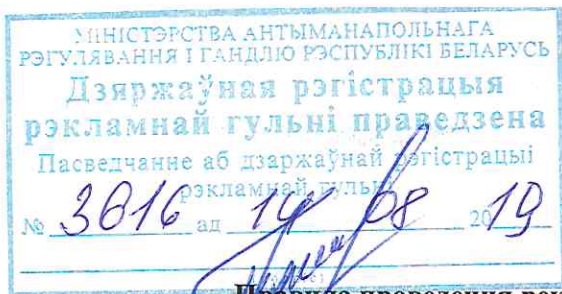 МІНІСТЭРСТВА АНТЫМАНАПОЛЬНАГА
РЭГУЛЯВАННЯ І ГАНДЛЮ РЭСПУБЛІКІ БЕЛАРУСЬ
Дзяржаўная рэгістрацыя
рэкламнай гульні праведзена
Пасведчанне аб дзяржаўнай рэгістрацыі
рэкламнай гульні
№ 3616 ад 14 08 2019
Правила проведения рек